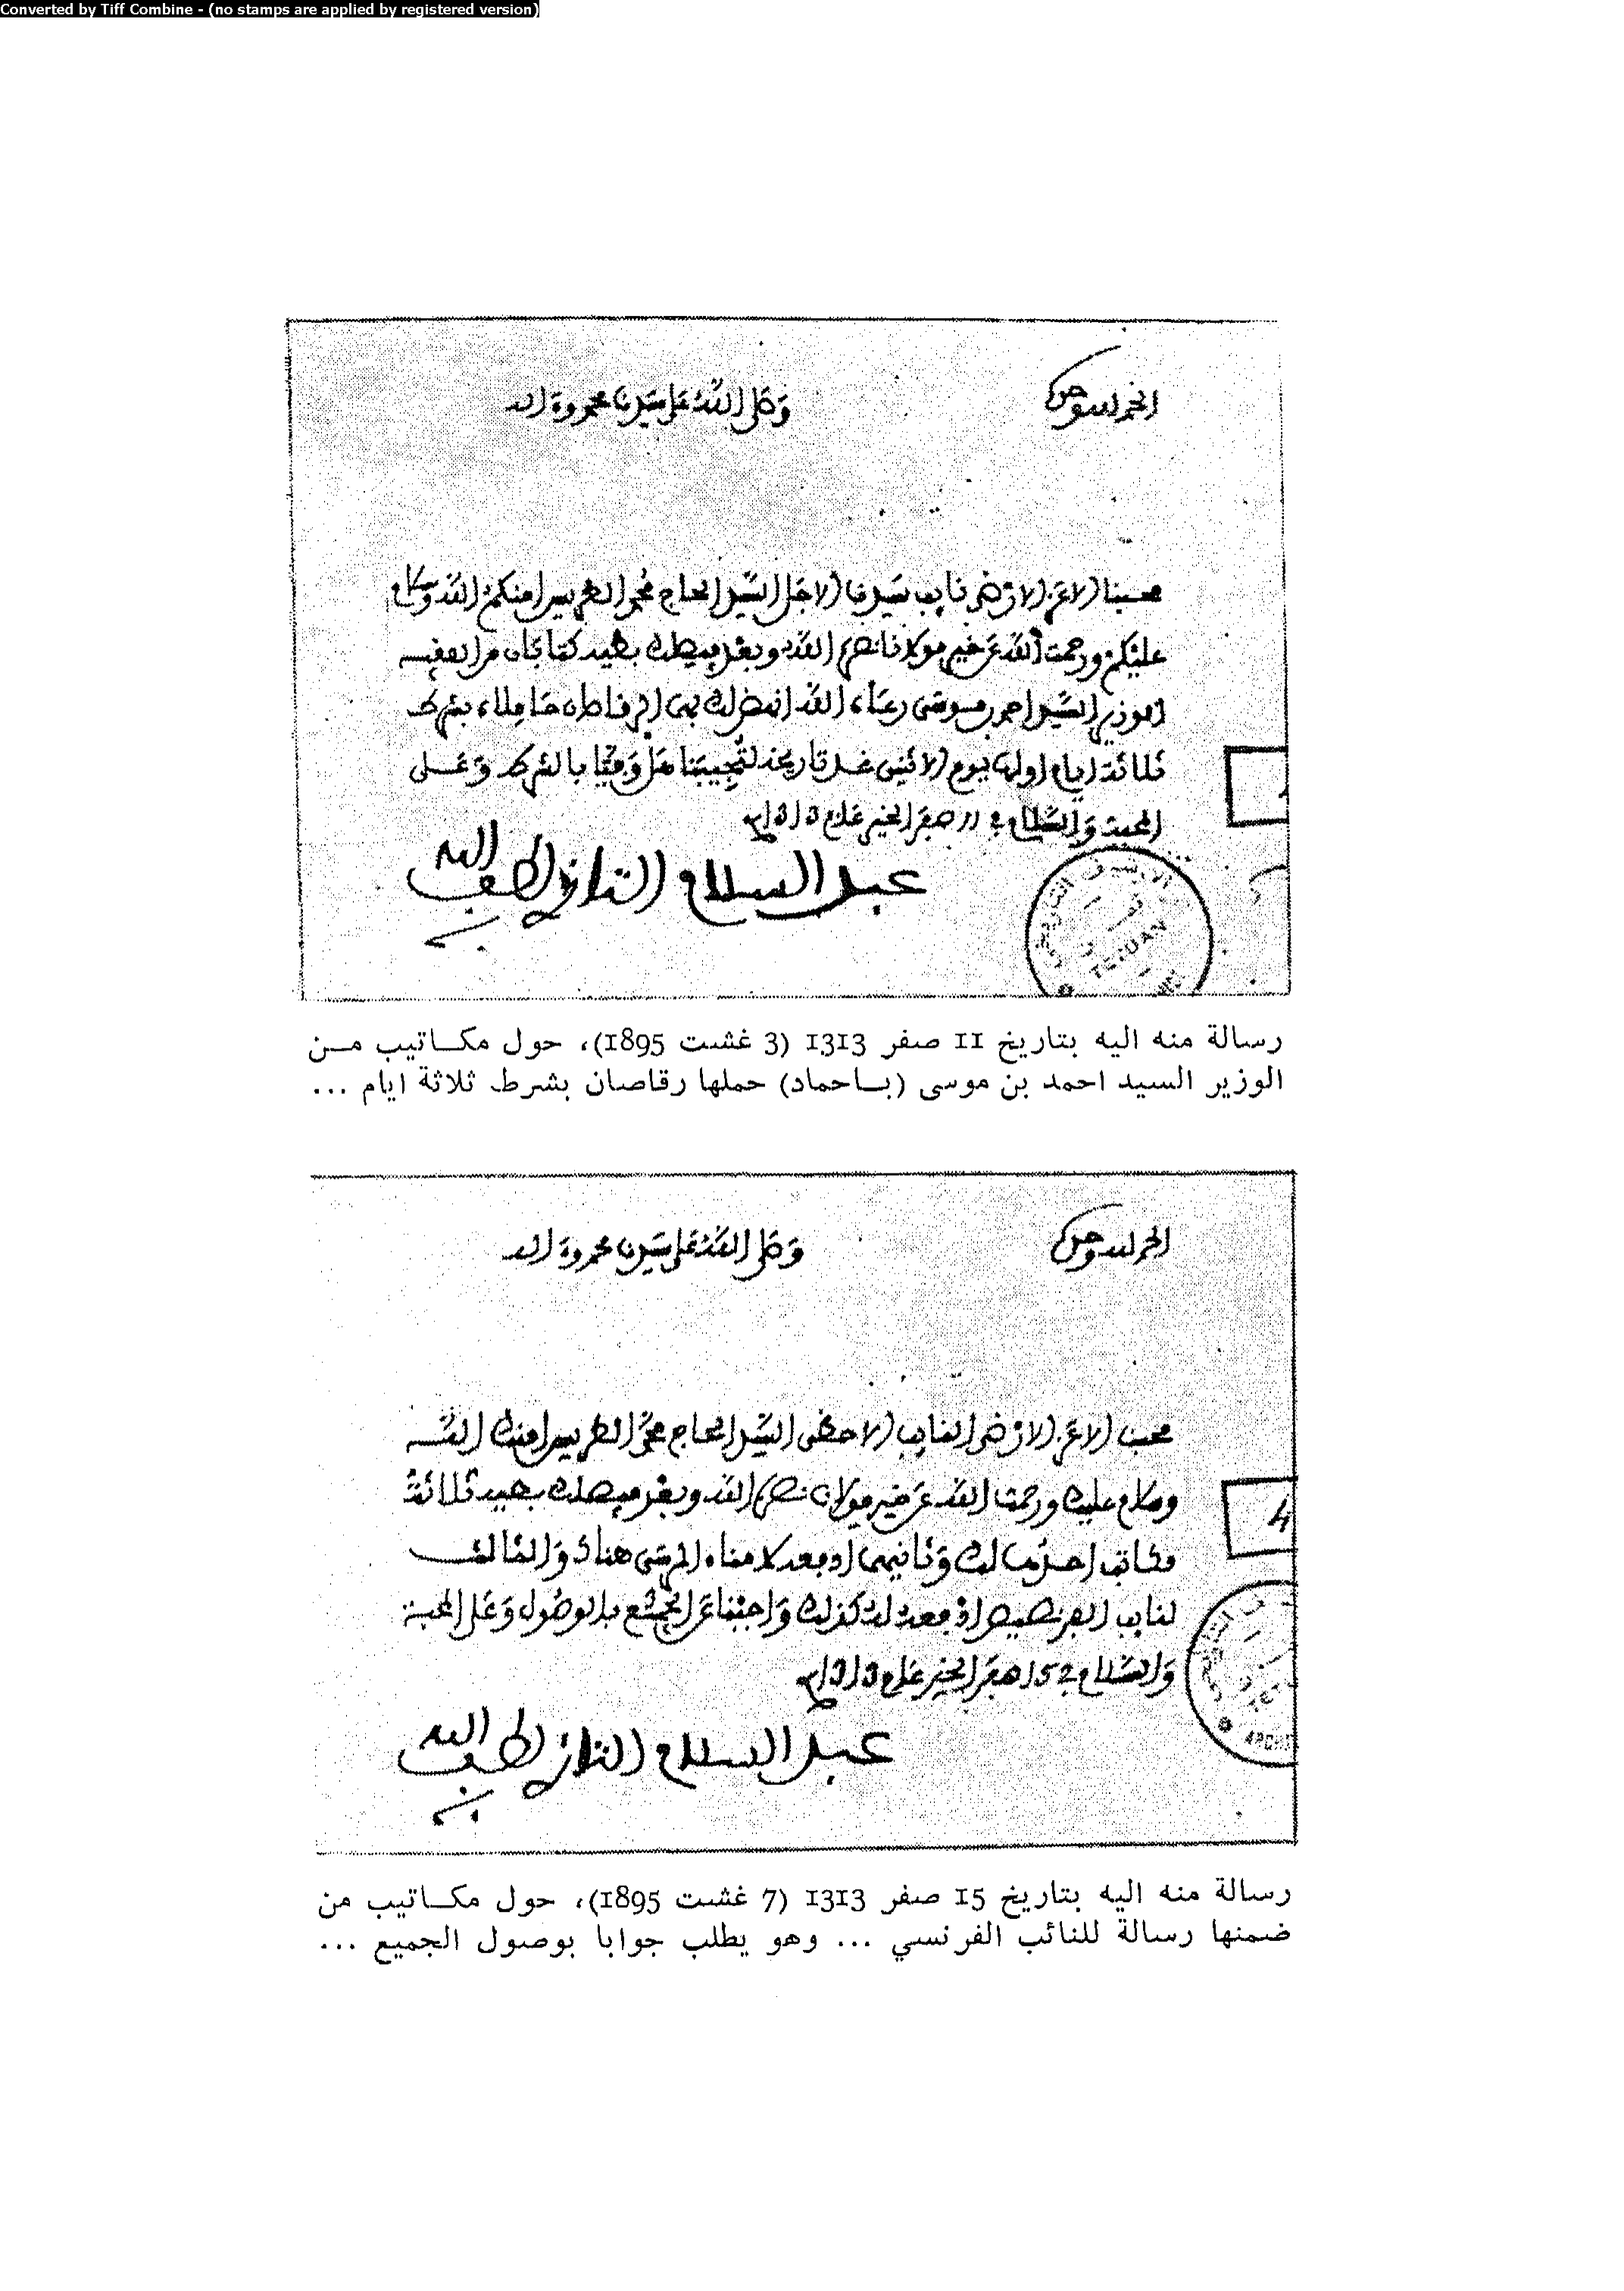 Converted by Tiff Combine - (no stamps are applied by registered version)
الحمد لله وحده
وصلى الله على سيدنا محمد وءاله
محبنا الاعز الارضى نايب سيدنا الاجل السيد الحاج محمد الطريس امنكم الله وسلام
عليكم ورحمت الله عن خير مولانا نصره الله وبعد فيصلك بطيه كتابان من الفقيه
الوزير السيد احمد بن موسى رعاه الله انهض لك بهما الرقاصان حاملاه بشرط
ثلاثة ايام اولها يوم الاثنين غد تاريخه لتجيبنا هل وفيا بالشرط وعلى
المحبة والسلام في 11 صفر الخير عام 1313
عبد السلام التازي لطف الله به
TETUAN
رسالة منه اليه بتاريخ 11 صفر 1313 (3 غشت 1895)، حول مكاتيب من
الوزير السيد احمد بن موسى (باحماد) حملها رقاصان بشرط ثلاثة ايام ...
الحمد لله وحده
وصلى الله على سيدنا محمد وءاله
محبنا الاعز الارضى النايب الاحظى السيد الحاج محمد الطريس امنك الله
وسلام عليك ورحمت الله عن خير مولانا نصره الله وبعد فيصلك بطيه ثلاثة
مكاتب احدها لك وثانيهما لامناء المرسى هناك والثالث
لنايب الفرنصيص لك كذلك واجبنا عن الجميع بالوصول وعلى المحبة
والسلام في 15 صفر الخير عام 1313
عبد السلام التازي لطف الله به
4
رسالة منه اليه بتاريخ 15 صفر 1313 (7 غشت 1895)، حول مكاتيب من
ضمنها رسالة للنائب الفرنسي ... وهو يطلب جوابا بوصول الجميع ...